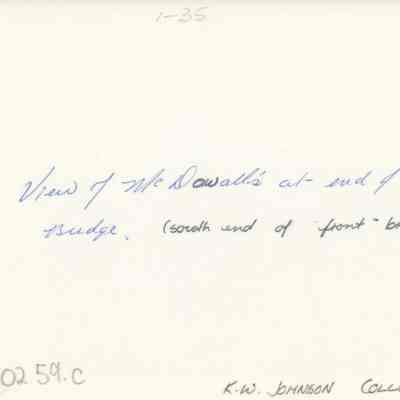 1-35
View of McDowall's at end of
Bridge. (south end of "front"
0259.C
K.W. JOHNSON